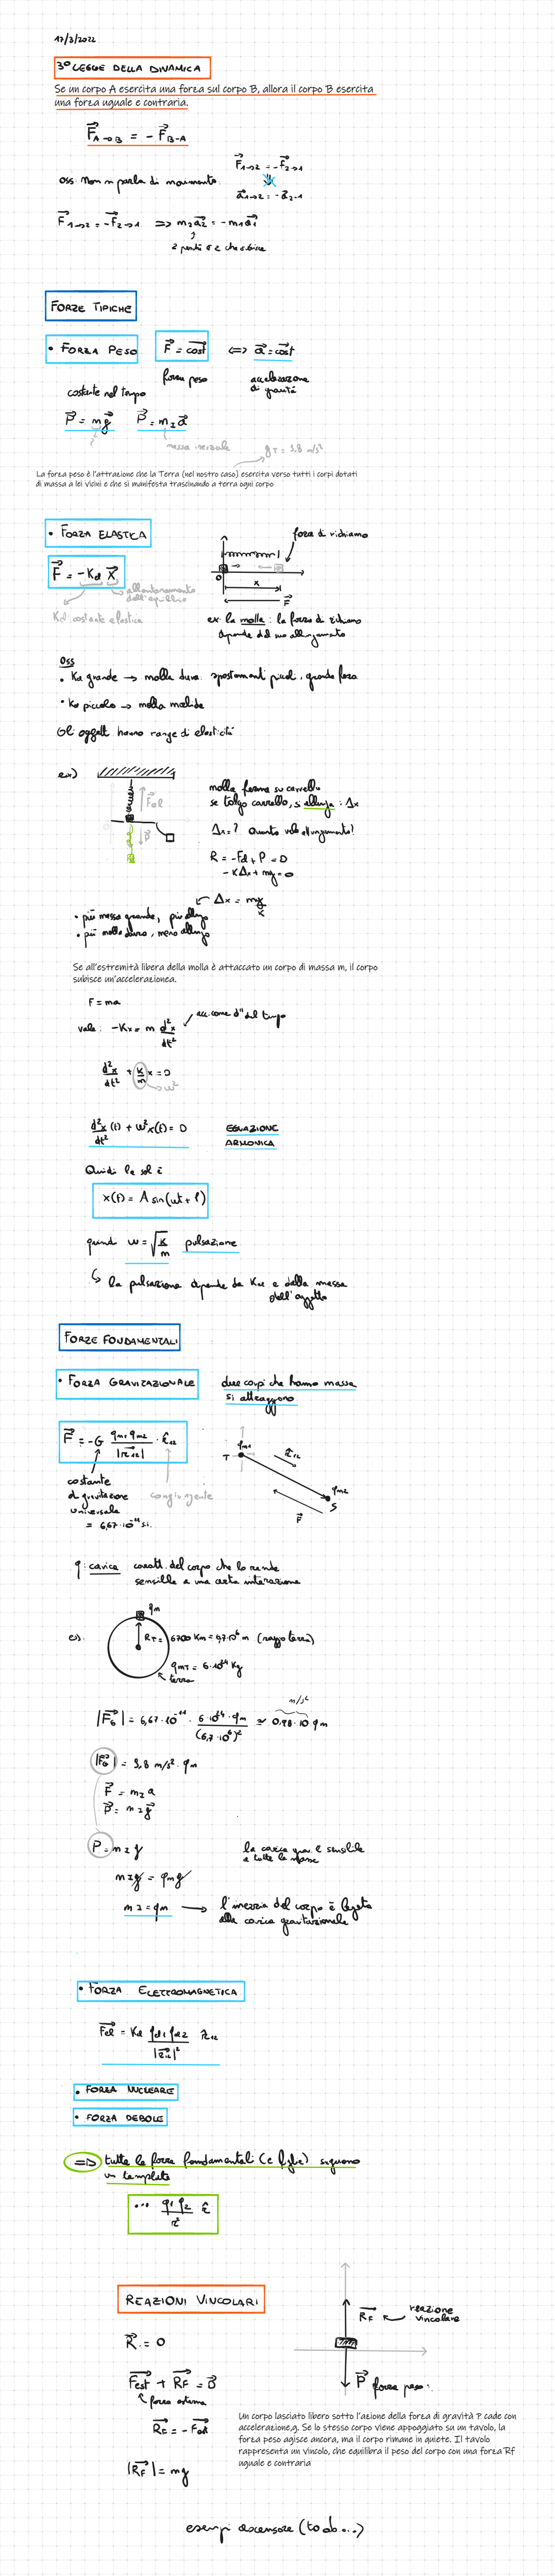 17/3/2022
3° LEGGE DELLA DINAMICA
Se un corpo A esercita una forza sul corpo B, allora il corpo B esercita
una forza uguale e contraria.
F A→B = - F B→A
oss: non si parla di movimento.
F 1→2 = - F 2→1
a 1→2 = - a 2→1
F 1→2 = - F 2→1 ⇒ m2 a2 = - m1 a1
FORZE TIPICHE
• FORZA PESO
F = cost ⇔ a = cost
forza peso
accelerazione
di gravità
costante nel tempo
P = mg P = mI a
massa inerziale
gT = 9,8 m/s²
La forza peso è l'attrazione che la Terra (nel nostro caso) esercita verso tutti i corpi dotati
di massa a lei vicini e che si manifesta trascinando a terra ogni corpo
• FORZA ELASTICA
F = - Kel X
allontanamento
dall'equilibrio
Kel: costante elastica
forza di richiamo
O
x
F
ex: la molla: la forza di richiamo
dipende dal suo allungamento
Oss
• Kel grande → molla dura: spostamenti piccoli, grande forza
• Kel piccolo → molla morbida
Gli oggetti hanno range di elasticità
ex)
Fel
P
molla ferma su carrello
se tolgo carrello, si allunga: Δx
Δx = ? Quanto vale allungamento?
R = -Fel + P = 0
-KΔx + mg = 0
Δx = mg/K
• più massa grande, più allungo
• più molla dura, meno allungo
Se all'estremità libera della molla è attaccato un corpo di massa m, il corpo
subisce un'accelerazionea.
F = ma
vale: -Kx = m d²x/dt²
acc. come d'' del tempo
d²x/dt² + K/m x = 0
ω²
d²x/dt² (t) + ω²x(t) = 0
EQUAZIONE
ARMONICA
Quindi la sol è
x(t) = A sin(ωt + φ)
quindi ω = √K/m pulsazione
la pulsazione dipende da Kel e dalla massa
dell'oggetto
FORZE FONDAMENTALI
• FORZA GRAVITAZIONALE
due corpi che hanno massa
si attraggono
F = -G qm1 qm2 / |r12|² · r̂12
costante
di gravitazione
universale
= 6,67·10⁻¹¹ s.i.
congiungente
T
qm1
r12
qm2
S
F
q: carica caratt. del corpo che lo rende
sensibile a una certa interazione
es.
qm
RT = 6700 Km = 6,7·10⁶ m (raggio terra)
qmT = 6·10²⁴ Kg
terra
|FG| = 6,67·10⁻¹¹ · 6·10²⁴ · qm / (6,7·10⁶)² ≃ 0,98·10 qm
m/s²
|FG| = 9,8 m/s² · qm
F = mI a
P = mI g
P = mI g
la carica grav. è sensibile
a tutte le masse
mI g = qm g
mI = qm → l'inerzia del corpo è legata
alla carica gravitazionale
• FORZA ELETTROMAGNETICA
Fel = Kel qel1 qel2 / |r12|² r̂12
• FORZA NUCLEARE
• FORZA DEBOLE
⇒ tutte le forze fondamentali (e figlie) seguono
un template
... q1 q2 / r² r̂
REAZIONI VINCOLARI
R = 0
Fest + RF = 0
forza esterna
RF = - Fest
|RF| = mg
RF
reazione
vincolare
P forza peso
Un corpo lasciato libero sotto l'azione della forza di gravità P cade con
accelerazione,g. Se lo stesso corpo viene appoggiato su un tavolo, la
forza peso agisce ancora, ma il corpo rimane in quiete. Il tavolo
rappresenta un vincolo, che equilibra il peso del corpo con una forza Rf
uguale e contraria
esempi ascensore (to do ...)